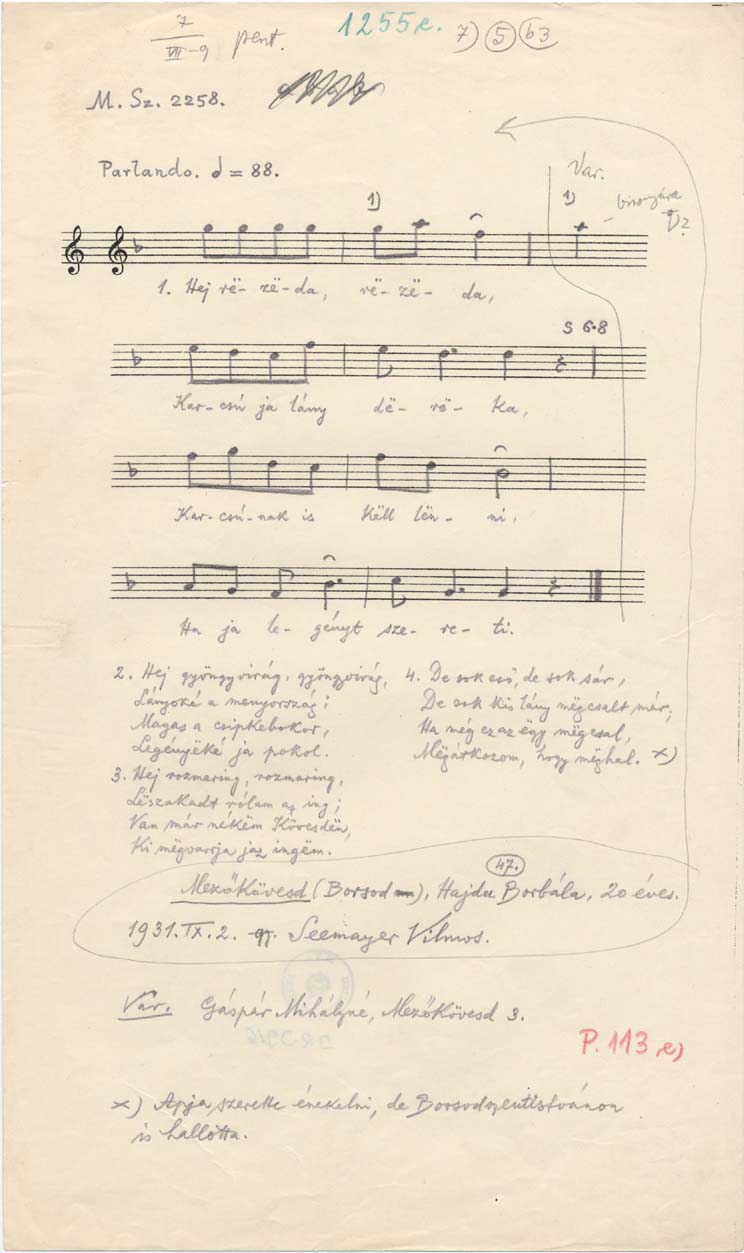 7
VII-9 pent. 1255e. 7) 5 b3
M. Sz. 2258.
Parlando. = 88.
Var.
1) 1) bizonyára
1. Hej rë-zë-da, rë-zë-da,
S 6-8
Kar-csú ja lány dë-rë-ka,
Kar-csú-nak is këll lën-ni,
Ha ja le-gényt sze-re-ti.
2. Hej gyöngyvirág, gyöngyvirág,
Lányoké a menyország;
Magas a csipkebokor,
Legényëké ja pokol.
3. Hej rozmaring, rozmaring,
Lëszakadt rólam az ing;
Van már nékëm Kövesdën,
Ki mëgvarrja jaz ingëm.
4. De sok eső, de sok sár,
De sok kis lány mëgcsalt már;
Ha még ez az ëgy mëgcsal,
Mëgátkozom, hogy mëghal. x)
47.
Mezőkövesd (Borsod), Hajdu Borbála, 20 éves.
1931. IX. 2. gy. Seemayer Vilmos.
Var. Gáspár Mihályné, Mezőkövesd 3.
P. 113 e)
x) Apja szerette énekelni, de Borsodszentistvánon
is hallotta.